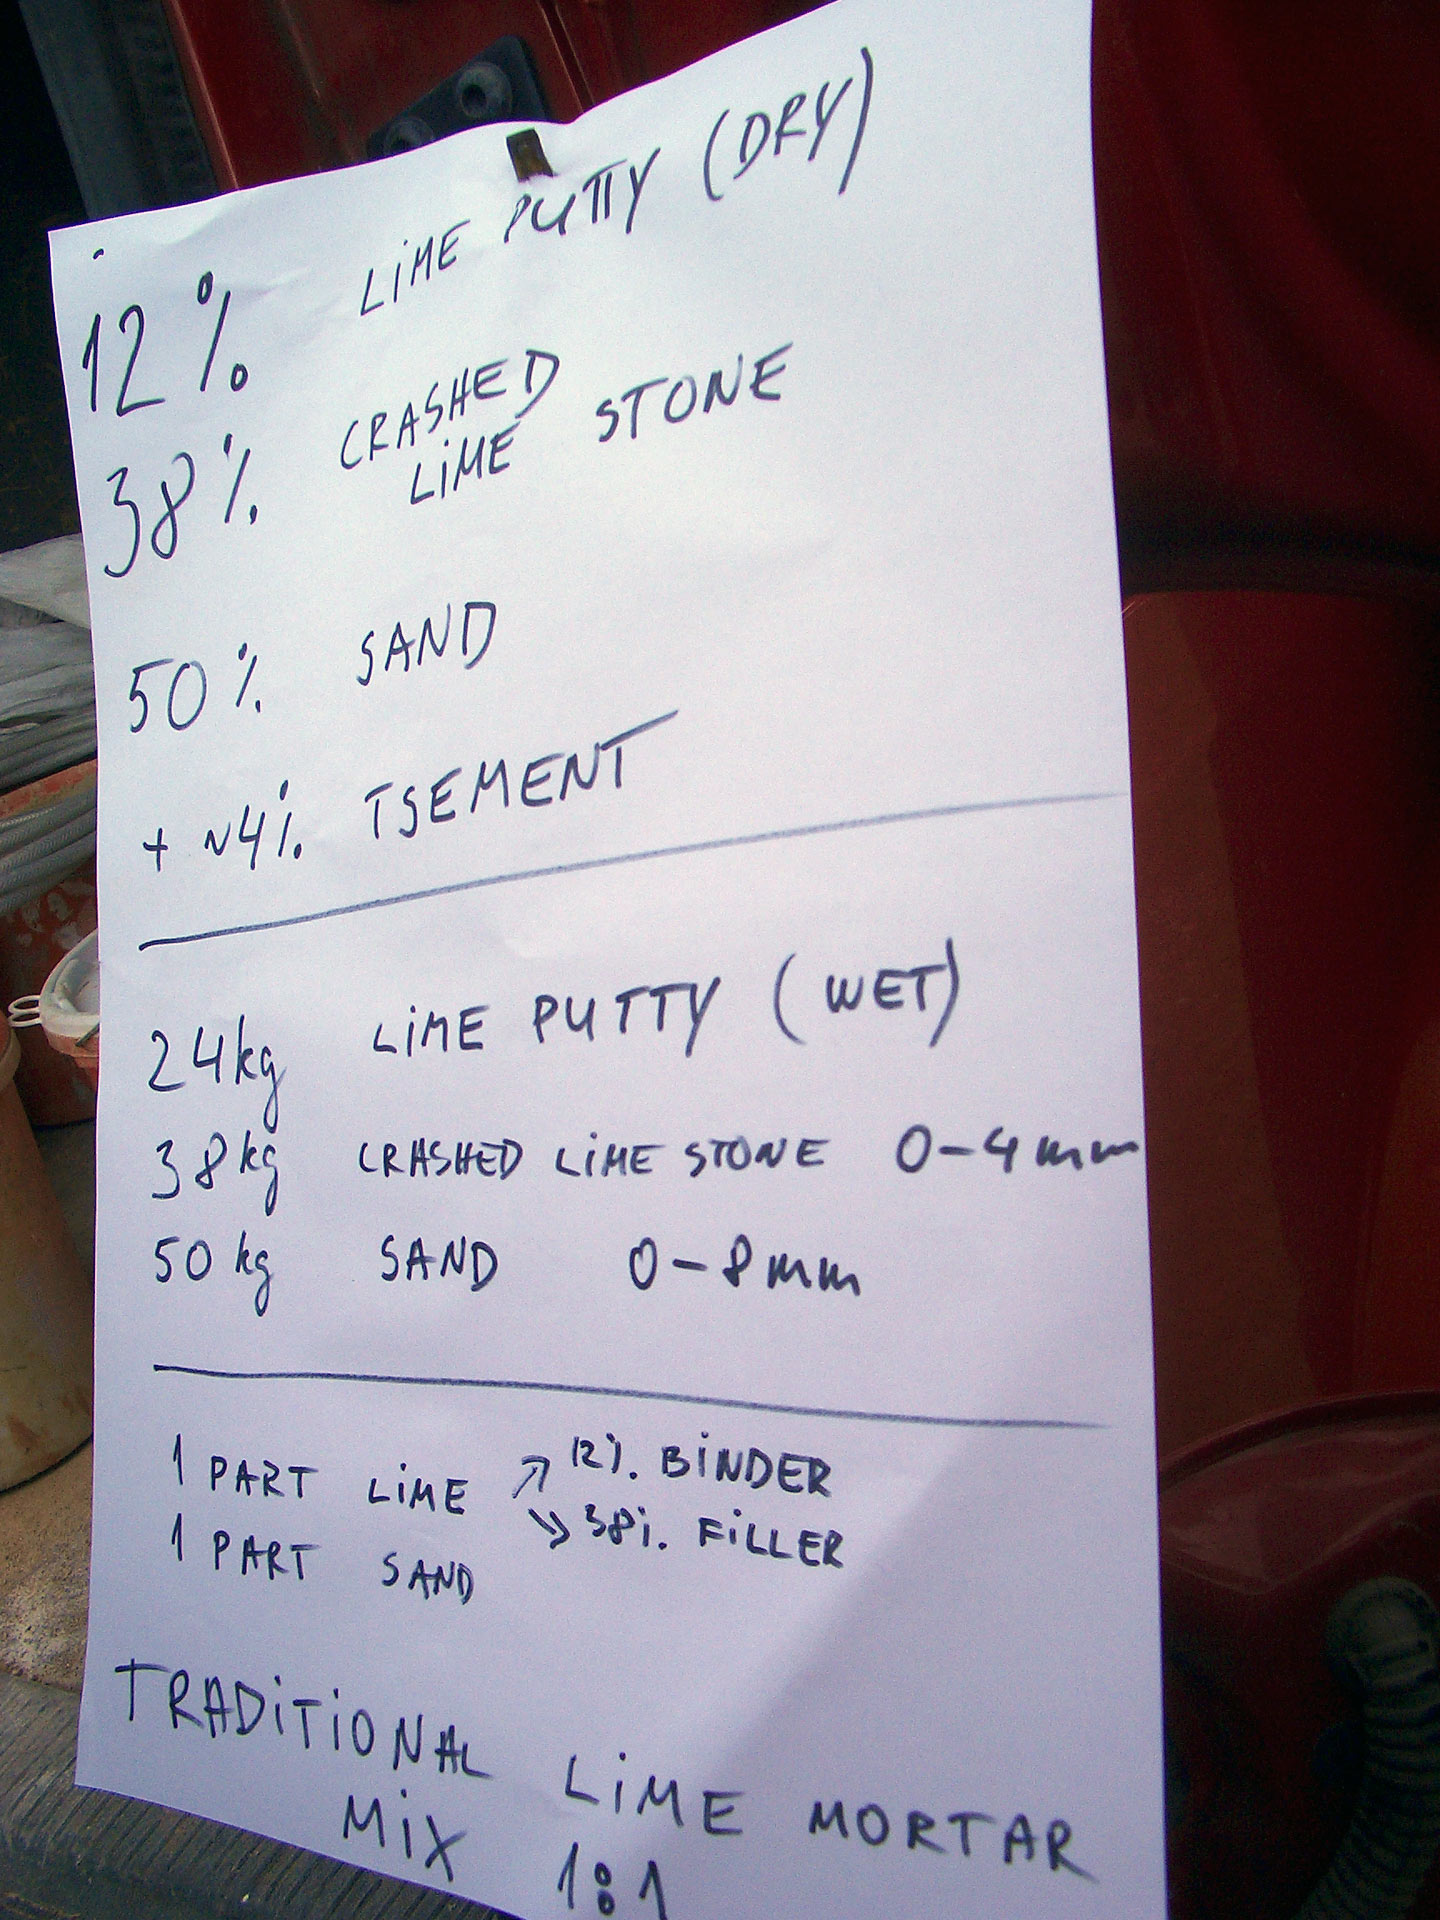 12% LiME PUTTY (DRY)
38% CRASHED
LiME STONE
50% SAND
+ ~4% TSEMENT
24kg LiME PUTTY (WET)
38kg CRASHED LiME STONE 0-4mm
50kg SAND 0-8mm
1 PART LiME ↗ 12%. BiNDER
↘ 38%. FiLLER
1 PART SAND
TRADiTiONAL LiME MORTAR
MiX 1:1